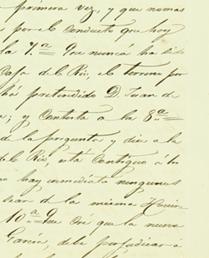 primera vez, y que nomas
por el conducto que hoy
la 7.ª Que nunca ha sido
Casa del Rio, el terreno
ha pretendido D. Juan de
; y Contesta a la 8.ª
de la pregunta y dice a la
del Rio, está contiguo á
hay inmediata ningunas
de la misma
10.ª Que Cre que la nueva
García, de perjudicar á